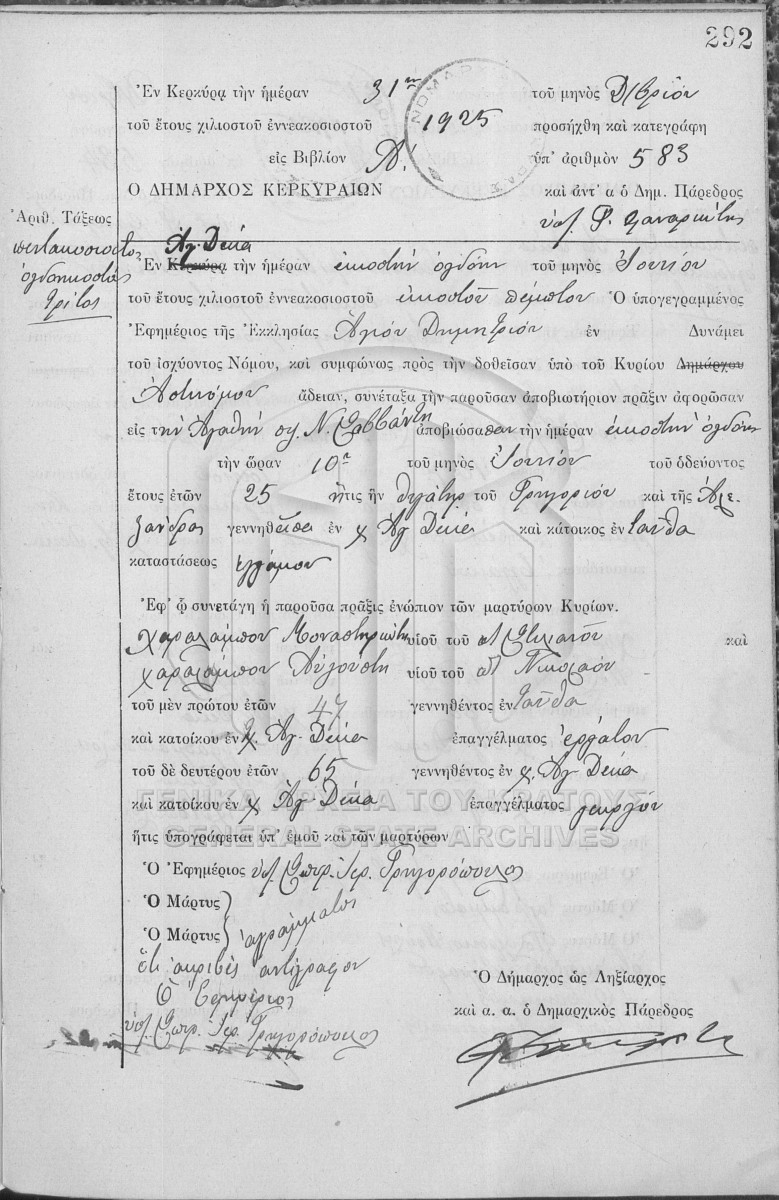 292
Ἐν Κερκύρᾳ τὴν ἡμέραν 31ην τοῦ μηνὸς Δ/βρίου
τοῦ ἔτους χιλιοστοῦ ἐννεακοσιοστοῦ 1925 προσήχθη καὶ κατεγράφη
εἰς Βιβλίον Α! ὑπ' ἀριθμὸν 583
Ο ΔΗΜΑΡΧΟΣ ΚΕΡΚΥΡΑΙΩΝ καὶ ἀντ' α ὁ Δημ. Πάρεδρος
Ἀριθ. Τάξεως
πεντακοσιοστὸς
ὀγδοηκοστὸς
τρίτος
Ἁγ. Δέκα
Ἐν Κερκύρᾳ τὴν ἡμέραν εἰκοστὴν ὀγδόην τοῦ μηνὸς Ἰουνίου
τοῦ ἔτους χιλιοστοῦ ἐννεακοσιοστοῦ εἰκοστοῦ πέμπτου Ὁ ὑπογεγραμμένος
Ἐφημέριος τῆς Ἐκκλησίας Ἁγίου Δημητρίου ἐν Δυνάμει
τοῦ ἰσχύοντος Νόμου, καὶ συμφώνως πρὸς τὴν δοθεῖσαν ὑπὸ τοῦ Κυρίου Δημάρχου
Ἀστυνόμου ἄδειαν, συνέταξα τὴν παροῦσαν ἀποβιωτήριον πρᾶξιν ἀφορῶσαν
εἰς τὴν Ἀγαθὴν συ. Ν. Σαββάνη ἀποβιώσασαν τὴν ἡμέραν εἰκοστὴν ὀγδόην
τὴν ὥραν 10ην τοῦ μηνὸς Ἰουνίου τοῦ ὁδεύοντος
ἔτους ἐτῶν 25 ἥτις ἦν θυγάτηρ τοῦ Γρηγορίου καὶ τῆς Ἀλε-
ξάνδρας γεννηθεῖσα ἐν χ Ἁγ Δέκα καὶ κάτοικος ἐν ταῦθα
καταστάσεως ἐγγάμου
Ἐφ' ᾧ συνετάγη ἡ παροῦσα πρᾶξις ἐνώπιον τῶν μαρτύρων Κυρίων.
Χαραλάμπου Μοναστηριώτη υἱοῦ τοῦ Στυλιανοῦ καὶ
Χαραλάμπου Αὐγούστη υἱοῦ τοῦ Νικολάου
τοῦ μὲν πρώτου ἐτῶν 47 γεννηθέντος ἐν ταῦθα
καὶ κατοίκου ἐν χ. Ἁγ. Δέκα ἐπαγγέλματος ἐργάτου
τοῦ δὲ δευτέρου ἐτῶν 65 γεννηθέντος ἐν χ. Ἁγ Δέκα
καὶ κατοίκου ἐν χ Ἁγ Δέκα ἐπαγγέλματος γεωργοῦ
ΓΕΝΙΚΑ ΑΡΧΕΙΑ ΤΟΥ ΚΡΑΤΟΥΣ
GENERAL STATE ARCHIVES
ἥτις ὑπογράφεται ὑπ' ἐμοῦ καὶ τῶν μαρτύρων
Ὁ Ἐφημέριος ὑπ. Σπυρ. Ἱερ. Γρηγορόπουλος
Ὁ Μάρτυς
Ὁ Μάρτυς ἀγράμματοι
ὅτι ἀκριβὲς ἀντίγραφον
Ὁ Ἐφημέριος
ὑπ. Σπυρ. Ἱερ. Γρηγορόπουλος
Ὁ Δήμαρχος ὡς Ληξίαρχος
καὶ α. α. ὁ Δημαρχικὸς Πάρεδρος